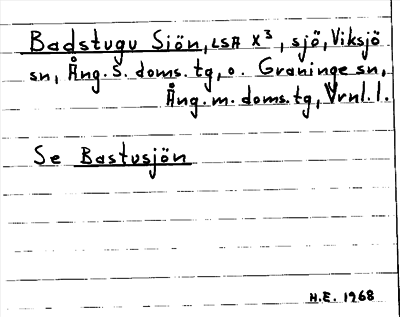 Badstugu Sjön, LSA X³, sjö, Viksjö
sn, Ång. S. doms. tg, o. Graninge sn,
Ång. m. doms. tg, Vrnl. l.
Se Bastusjön
H.E. 1968